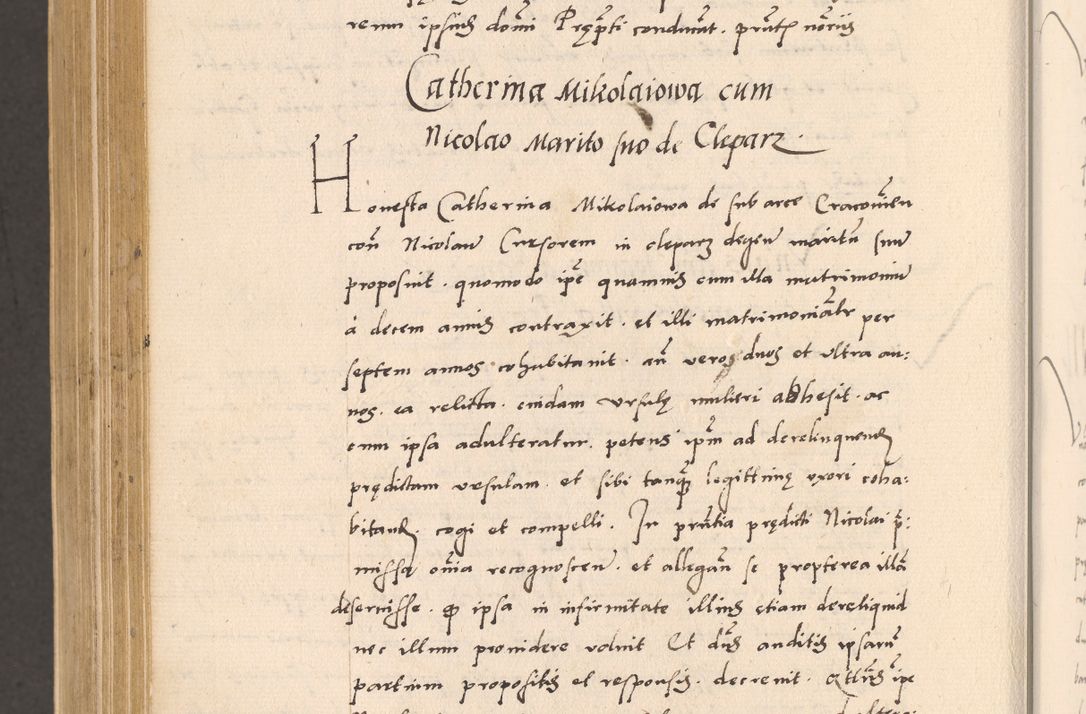 rerum ipsius domi Prępti conducat. prntt noriis
Catherina Mikolaiowa cum
Nicolao Marito suo de Cleparz.
Honesta Catherina Mikolaiowa de sub arce Cracovien
con Nicolaum Cursorem in cleparz degen maritum suum
proposuit. quomodo ipe quamuis cum illa matrimonium
á decem annis contraxit. et illi matrimonialr per
septem annos cohabitauit. an vero duos et ultra an:
nos. ea relicta. cuidam Ursulę mulieri adhesit. ac
cum ipsa adulteratur. petens ipm ad derelinquend
prędictam ursulam. et sibi tanq legittimę uxori coha:
bitand. cogi et compelli. In prntia prędicti Nicolai p:
missa omia recognoscen. et allegan se propterea illa
deseruisse. q ipsa in infirmitate illius etiam dereliquid
nec illum prouidere voluit Et dns auditis ipsarum
partium propositis et responsis. decreuit. ipe